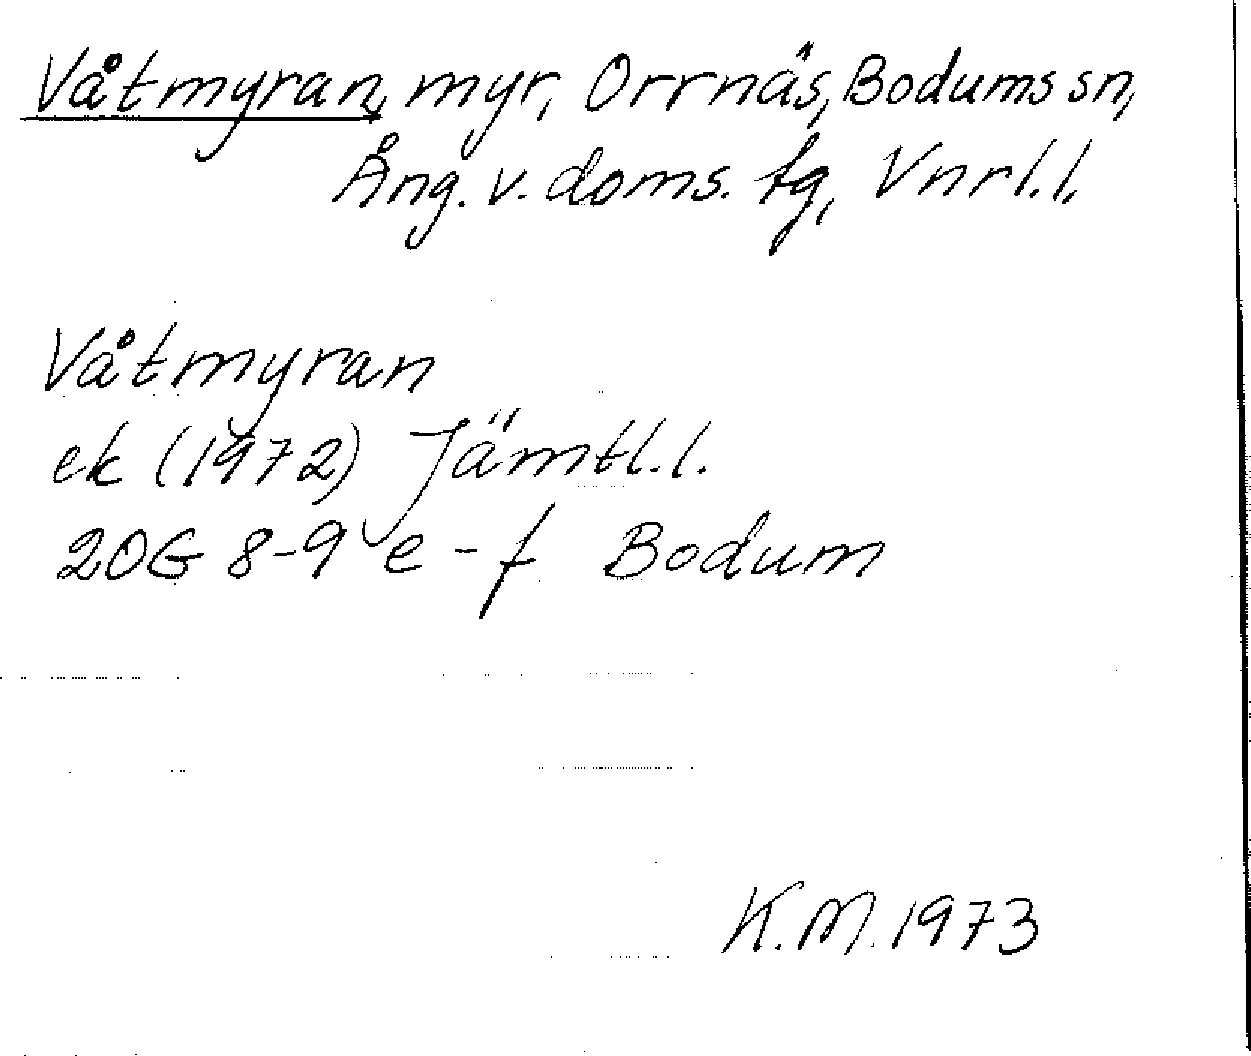 Våtmyran, myr, Orrnäs, Bodums sn,
Ång. v. doms. tg, Vnrl. l.
Våtmyran
ek (1972) Jämtl. l.
20G 8-9 e - f Bodum
K.M. 1973